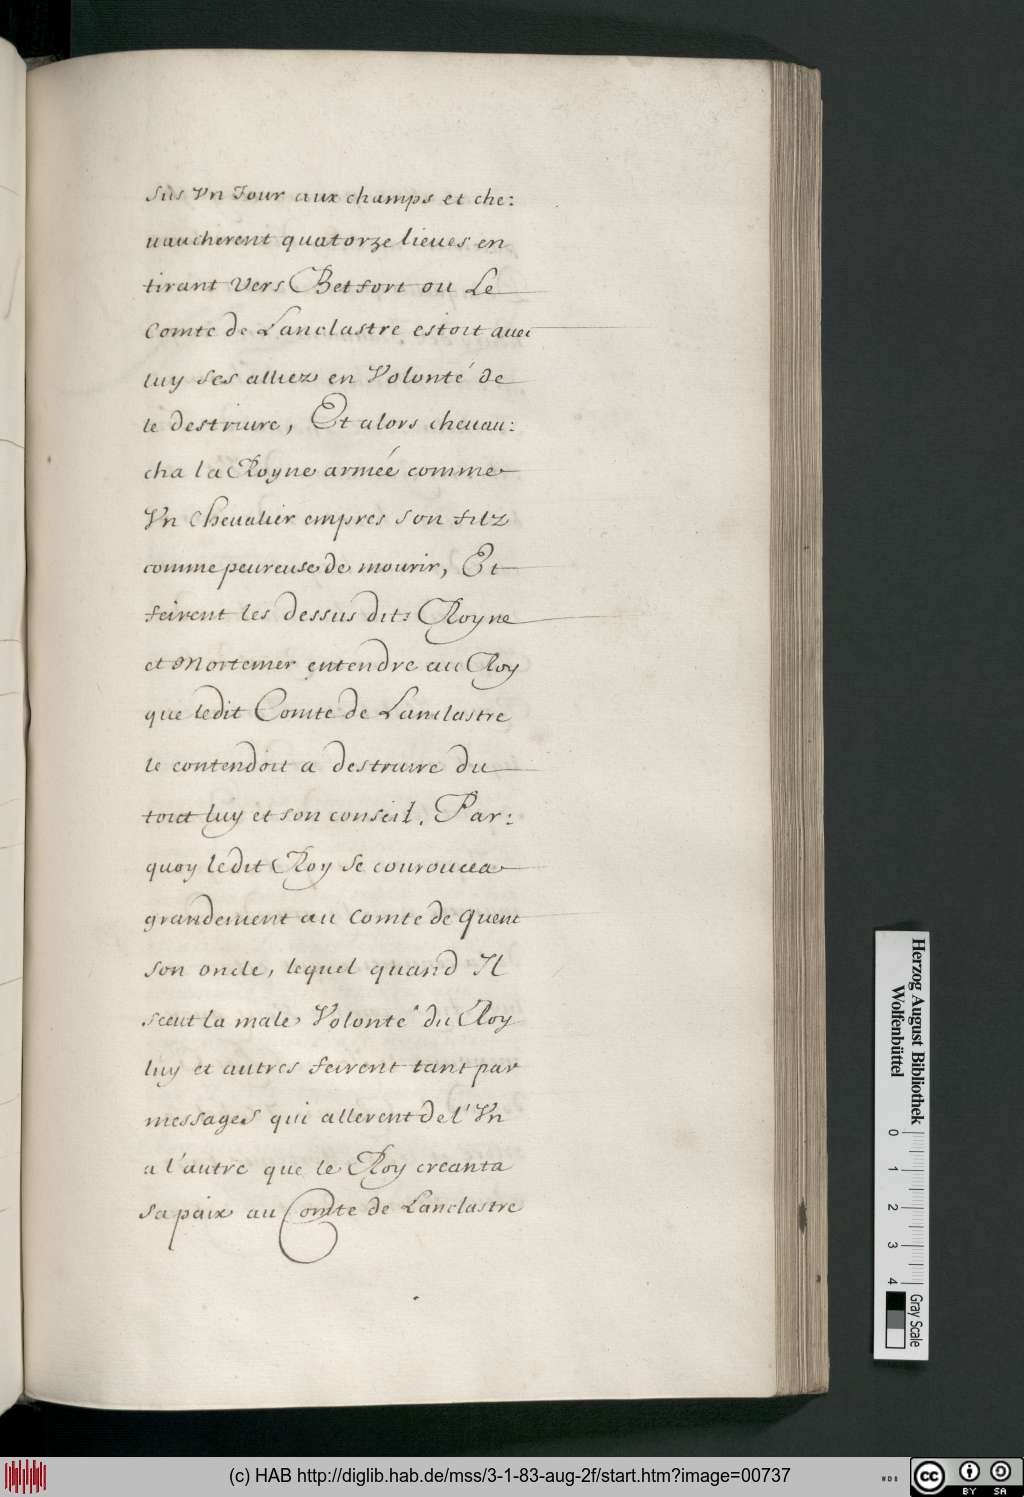 sus Vn Jour aux champs et che:
uaucherent quatorze lieues en
tirant vers Betfort ou Le
Comte de Lanclastre estoit auec
luy ses alliez en Volonté de
le destruire, Et alors cheuau:
cha la Royne armée comme
Vn Cheualier empres son filz
comme peureuse de mourir, Et
feirent les dessus dits Royne
et Mortemer entendre au Roy
que ledit Comte de Lanclastre
le contendoit a destruire du
tout luy et son conseil. Par:
quoy ledit Roy se couroucea
grandement au Comte de Quent
son oncle, lequel quand Il
sceut la male Volonte du Roy
luy et autres feirent tant par
messages qui allerent de l'Vn
a l'autre que le Roy creanta
sa paix au Comte de Lanclastre
Herzog August Bibliothek
Wolfenbüttel
0 1 2 3 4
Gray Scale
(c) HAB http://diglib.hab.de/mss/3-1-83-aug-2f/start.htm?image=00737
WDB
cc BY SA